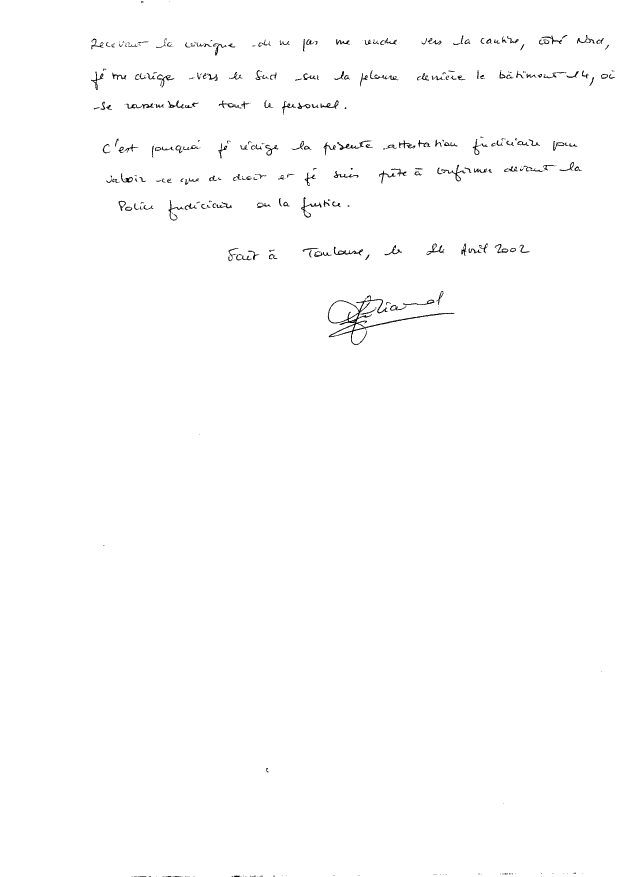 Recevant la consigne de ne pas me rendre vers la cantine, côté Nord,
je me dirige vers le Sud sur la pelouse derrière le bâtiment 14, où
se rassemblent tout le personnel.
C'est pourquoi je rédige la présente attestation judiciaire pour
valoir ce que de droit et je suis prête à confirmer devant la
Police judiciaire ou la justice.
Fait à Toulouse, le 24 Avril 2002